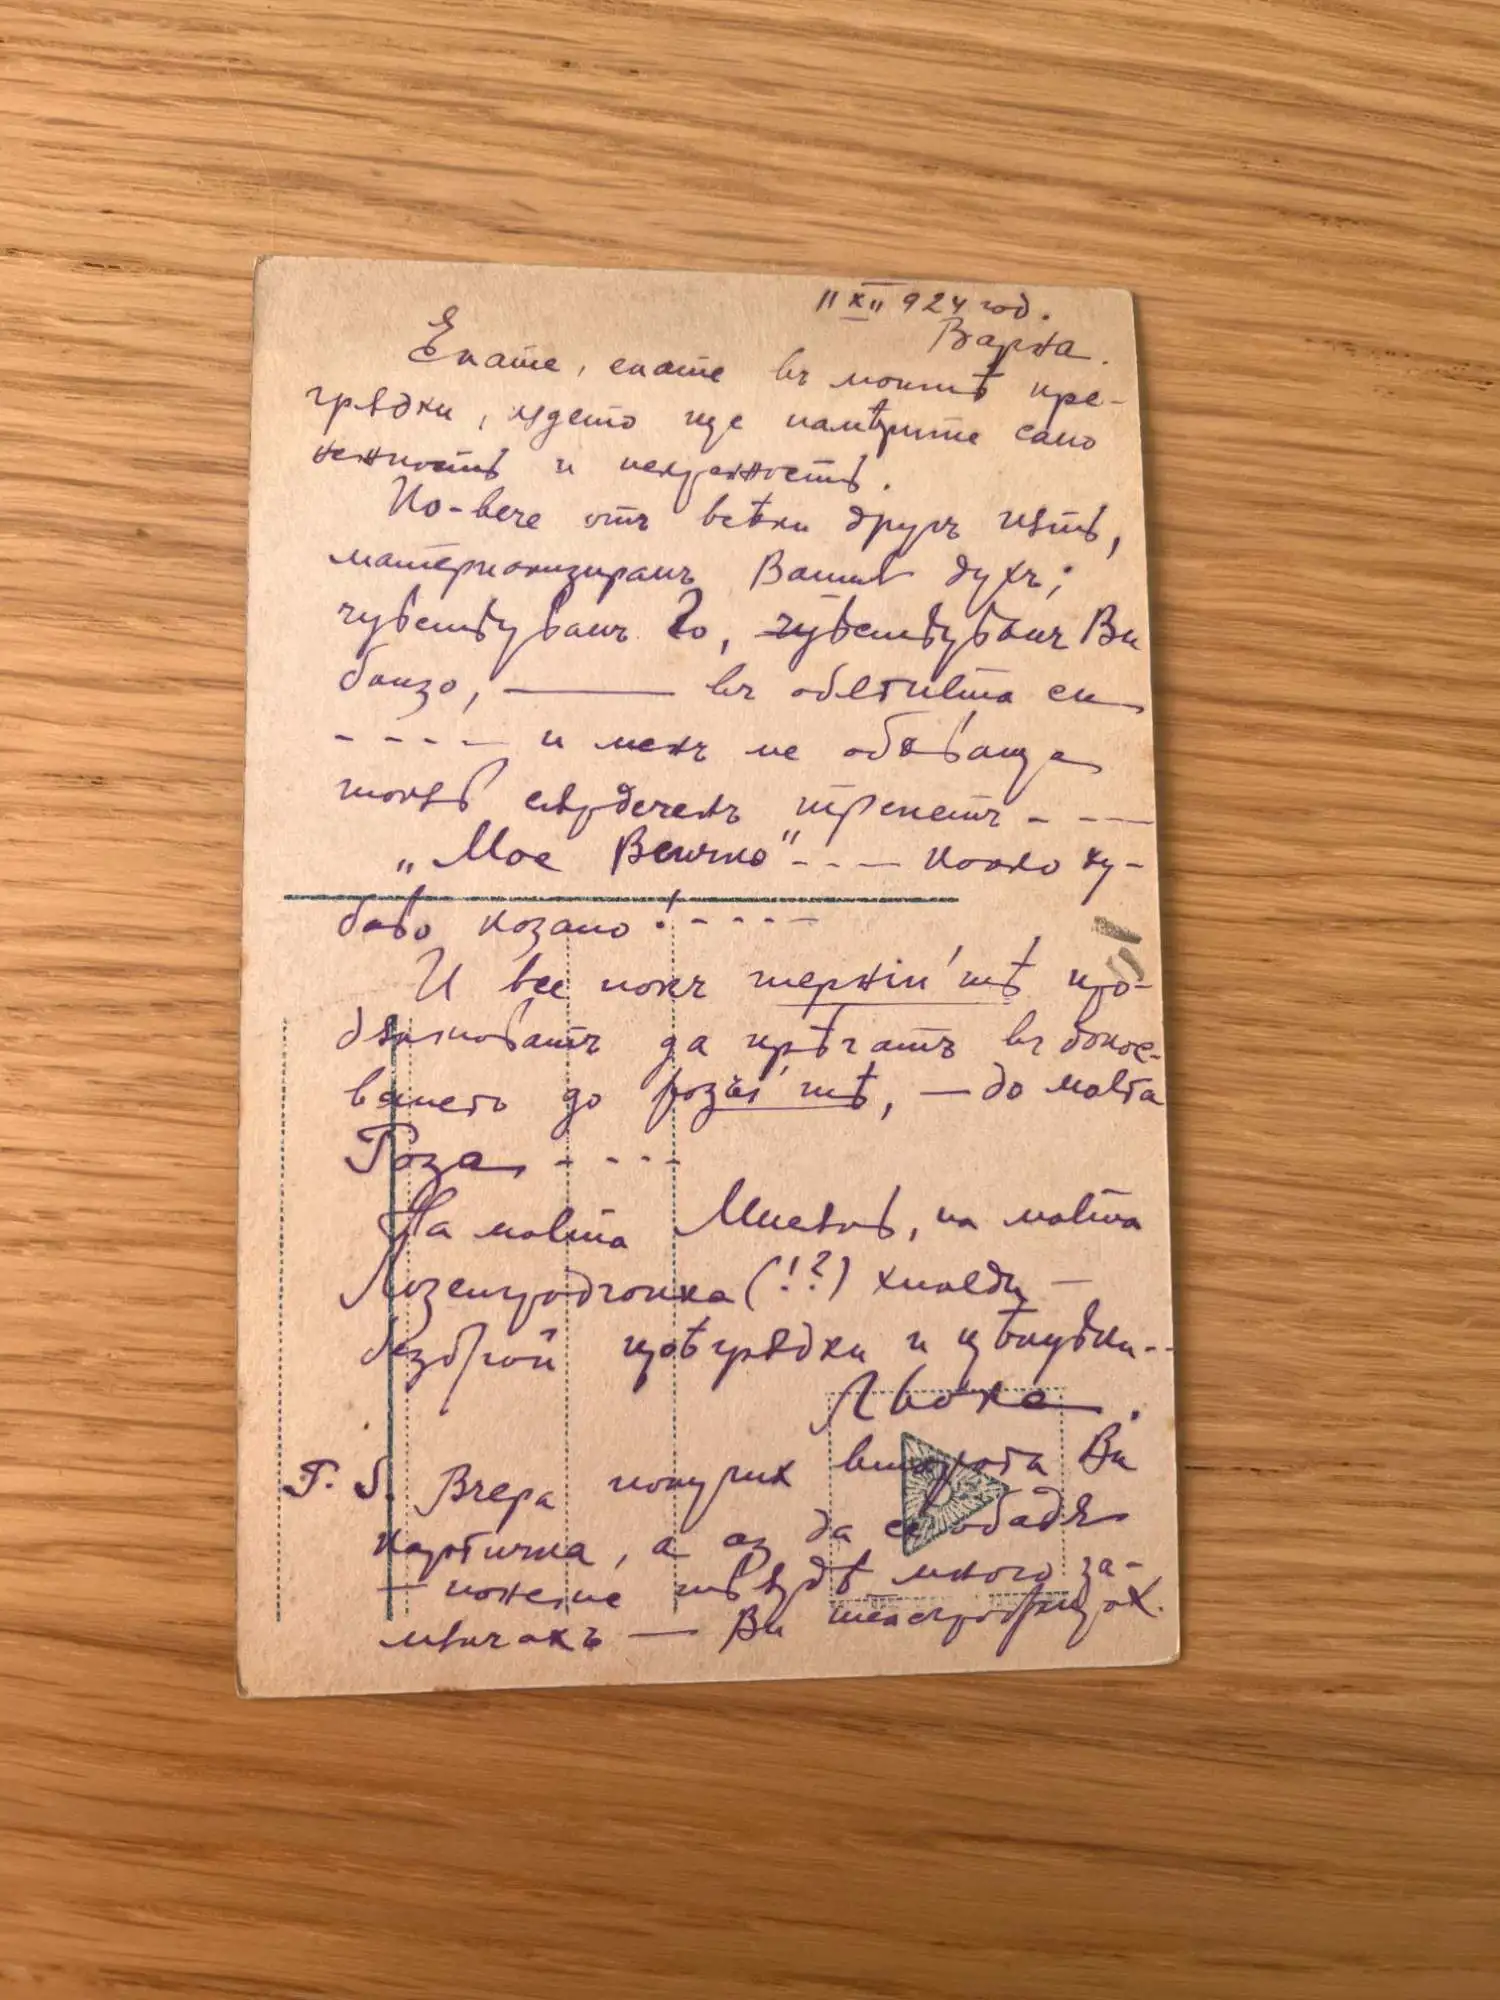 11 XII 924 год.
Варна.
Елате, елате въ моитѣ пре-
грѫдки, гдето ще намѣрите само
нежность и искреность.
По-вече отъ всѣки другъ пѫть,
материализирамъ Вашия духъ;
чувствувамъ го, чувствувамъ Ви
близо, — въ обятията си
- - - - и менъ ме обхваща
такъвъ сърдеченъ трепетъ - - -
„Мое Величко" - - - Колко ху-
баво казано! - - - -
И все пакъ тернии'тѣ про-
дължаватъ да прѣчатъ въ
до рози'тѣ, — до моята
Роза - - - -
На моята Мисъль, на моята
(!?) хиляди —
безброй прѣгрѫдки и цѣлувки..
Льока.
P. S. Вчера получих втората Ви
картичка, а аз да се обадя
— понеже много за-
мълчахъ — Ви телеграфирах.